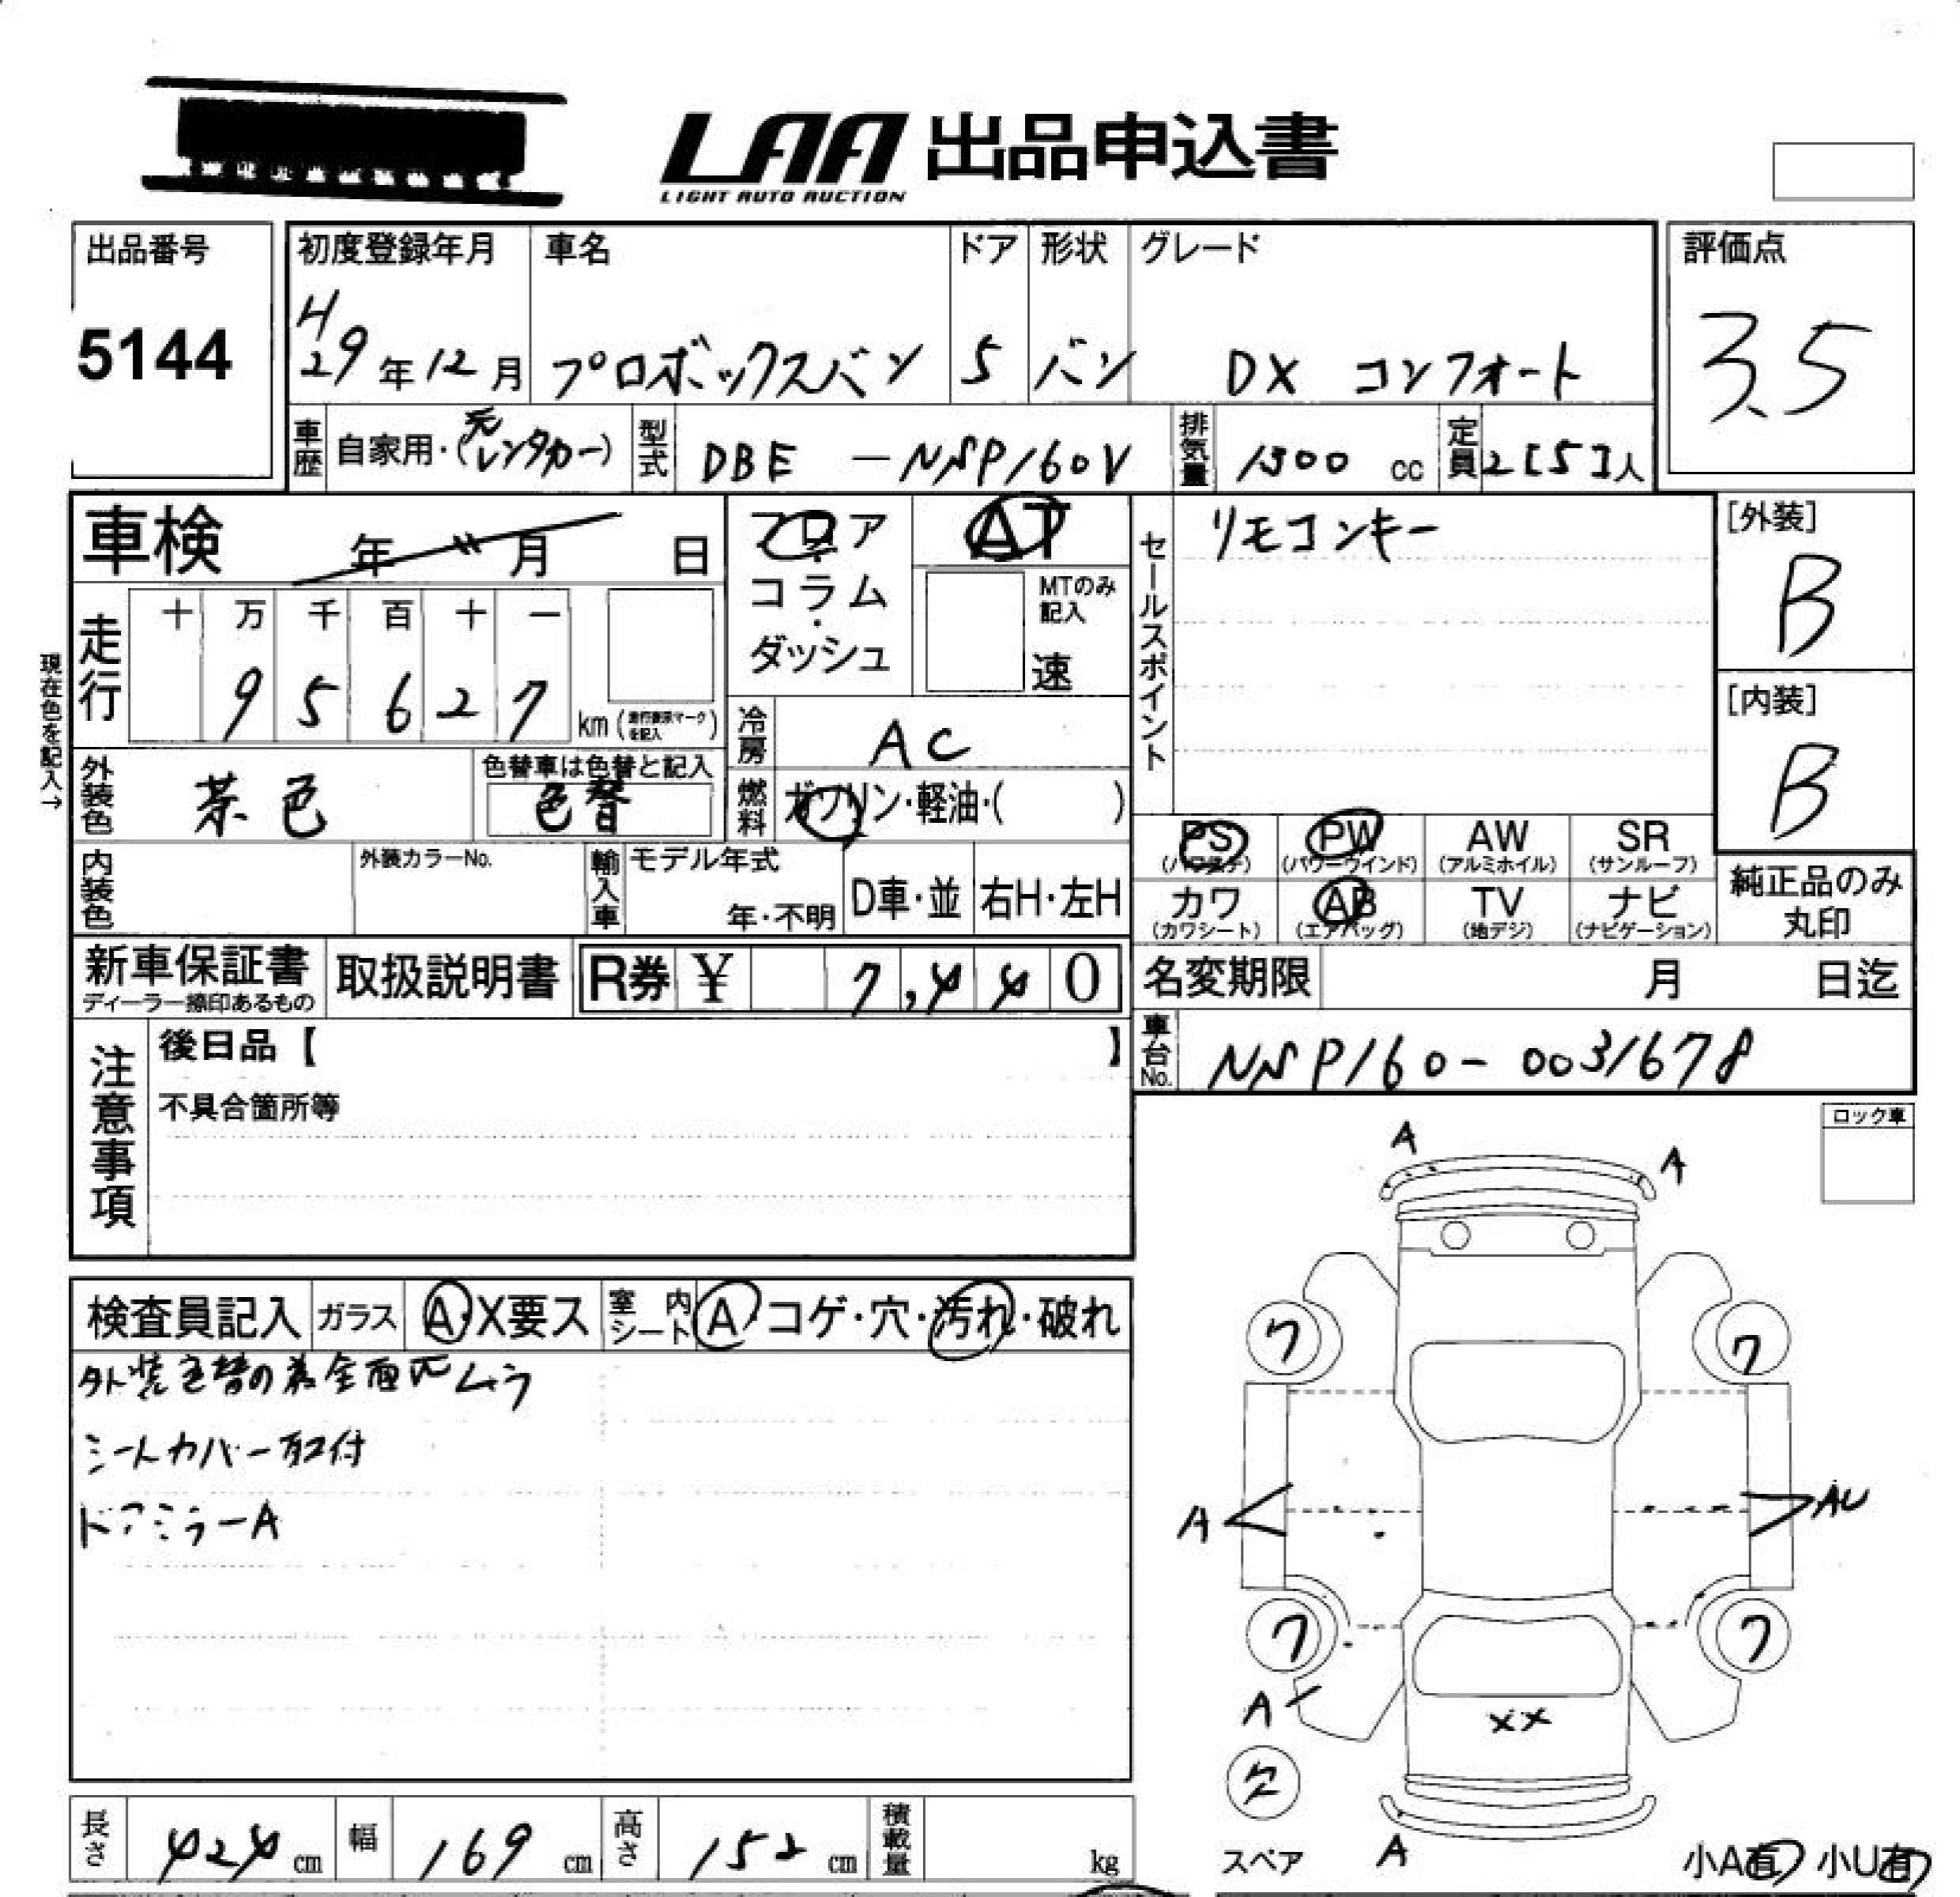 LAA 出品申込書
LIGHT AUTO AUCTION
出品番号
5144
初度登録年月
H29年12月
車名
プロボックスバン
ドア
5
形状
バン
グレード
DX コンフォート
評価点
3.5
車歴 自家用・(元レンタカー)
型式 DBE -NSP160V
排気量 1500 cc
定員 2[5]人
車検 年 〃 月 日
フロア・コラム・ダッシュ
AT
MTのみ記入
速
セールスポイント
リモコンキー
[外装]
B
[内装]
B
現在色を記入→
走行
十 万 千 百 十 一
9 5 6 2 7 km (走行表示マークを記入)
冷房 AC
外装色 茶色
色替車は色替と記入
色替
燃料 ガソリン・軽油・( )
PS (パワステ)
PW (パワーウインド)
AW (アルミホイル)
SR (サンルーフ)
カワ (カワシート)
AB (エアバッグ)
TV (地デジ)
ナビ (ナビゲーション)
純正品のみ丸印
内装色
外装カラーNo.
輸入車
モデル年式
年・不明
D車・並
右H・左H
新車保証書
ディーラー捺印あるもの
取扱説明書
R券 ¥ 7,440
名変期限 月 日迄
車台No. NSP160-0031678
注意事項
後日品【 】
不具合箇所等
ロック車
検査員記入
ガラス A・X要ス
室内シート A・コゲ・穴・汚れ・破れ
外装色替の為全面凹ムラ
シートカバー取付
ドアミラーA
A
A
ワ
ワ
A
AU
ワ
ワ
A
XX
スペア
A
小A有 小U有
長さ 424 cm
幅 169 cm
高さ 152 cm
積載量 kg